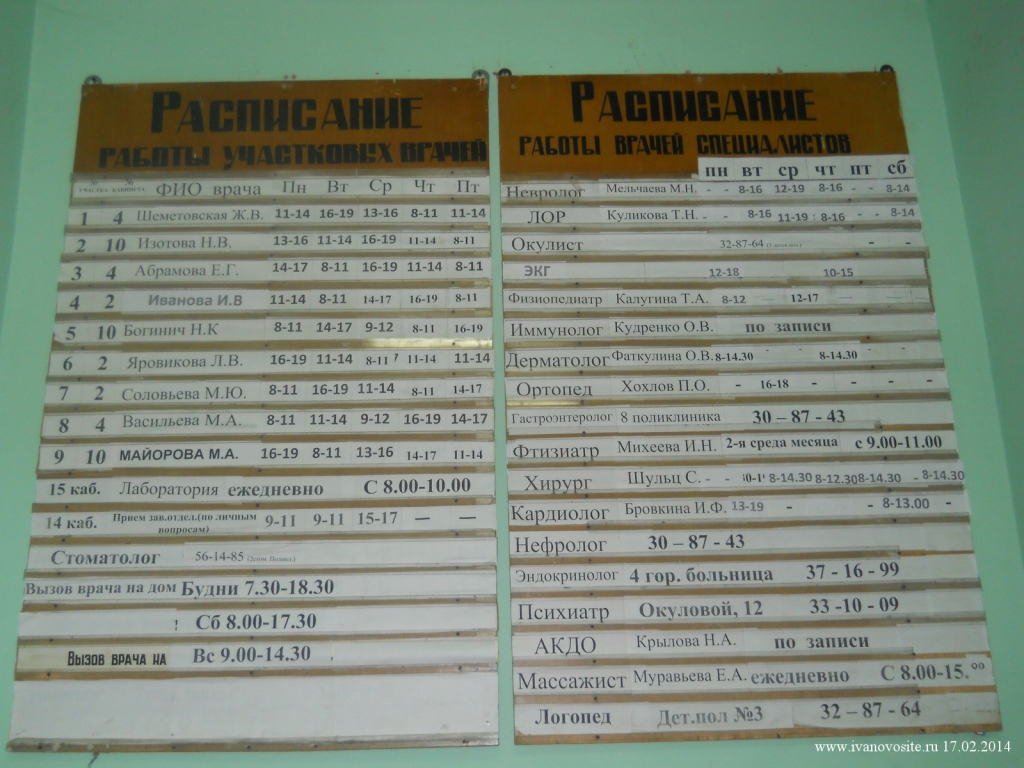 РАСПИСАНИЕ
РАБОТЫ УЧАСТКОВЫХ ВРАЧЕЙ
№ УЧАСТКА № КАБИНЕТА ФИО врача Пн Вт Ср Чт Пт
1 4 Шеметовская Ж.В. 11-14 16-19 13-16 8-11 11-14
2 10 Изотова Н.В. 13-16 11-14 16-19 11-14 8-11
3 4 Абрамова Е.Г. 14-17 8-11 16-19 11-14 8-11
4 2 Иванова И.В 11-14 8-11 14-17 16-19 8-11
5 10 Богинич Н.К 8-11 14-17 9-12 8-11 16-19
6 2 Яровикова Л.В. 16-19 11-14 8-11 11-14 11-14
7 2 Соловьева М.Ю. 8-11 16-19 11-14 8-11 14-17
8 4 Васильева М.А. 8-11 11-14 9-12 16-19 14-17
9 10 МАЙОРОВА М.А. 16-19 8-11 13-16 14-17 11-14
15 каб. Лаборатория ежедневно С 8.00-10.00
14 каб. Прием зав.отдел.(по личным вопросам) 9-11 9-11 15-17 — —
Стоматолог 56-14-85
Вызов врача на дом Будни 7.30-18.30
! Сб 8.00-17.30
Вызов врача на Вс 9.00-14.30
РАСПИСАНИЕ
РАБОТЫ ВРАЧЕЙ СПЕЦИАЛИСТОВ
пн вт ср чт пт сб
Невролог Мельчаева М.Н. - - 8-16 12-19 8-16 - - 8-14
ЛОР Куликова Т.Н. - - 8-16 11-19 8-16 - - 8-14
Окулист 32-87-64 - -
ЭКГ 12-18 10-15
Физиопедиатр Калугина Т.А. 8-12 — 12-17 — — —
Иммунолог Кудренко О.В. по записи
Дерматолог Фаткулина О.В. 8-14.30 - - 8-14.30 - -
Ортопед Хохлов П.О. - 16-18 - - - -
Гастроэнтеролог 8 поликлиника 30 – 87 - 43
Фтизиатр Михеева И.Н. 2-я среда месяца с 9.00-11.00
Хирург Шульц С. - - 8-14.30 8-12.30 8-14.30 - 8-14.30
Кардиолог Бровкина И.Ф. 13-19 - - 8-13.00 -
Нефролог 30 – 87 - 43
Эндокринолог 4 гор. больница 37 - 16 - 99
Психиатр Окуловой, 12 33 -10 - 09
АКДО Крылова Н.А. по записи
Массажист Муравьева Е.А. ежедневно С 8.00-15.00
Логопед Дет.пол №3 32 – 87 - 64
www.ivanovosite.ru 17.02.2014